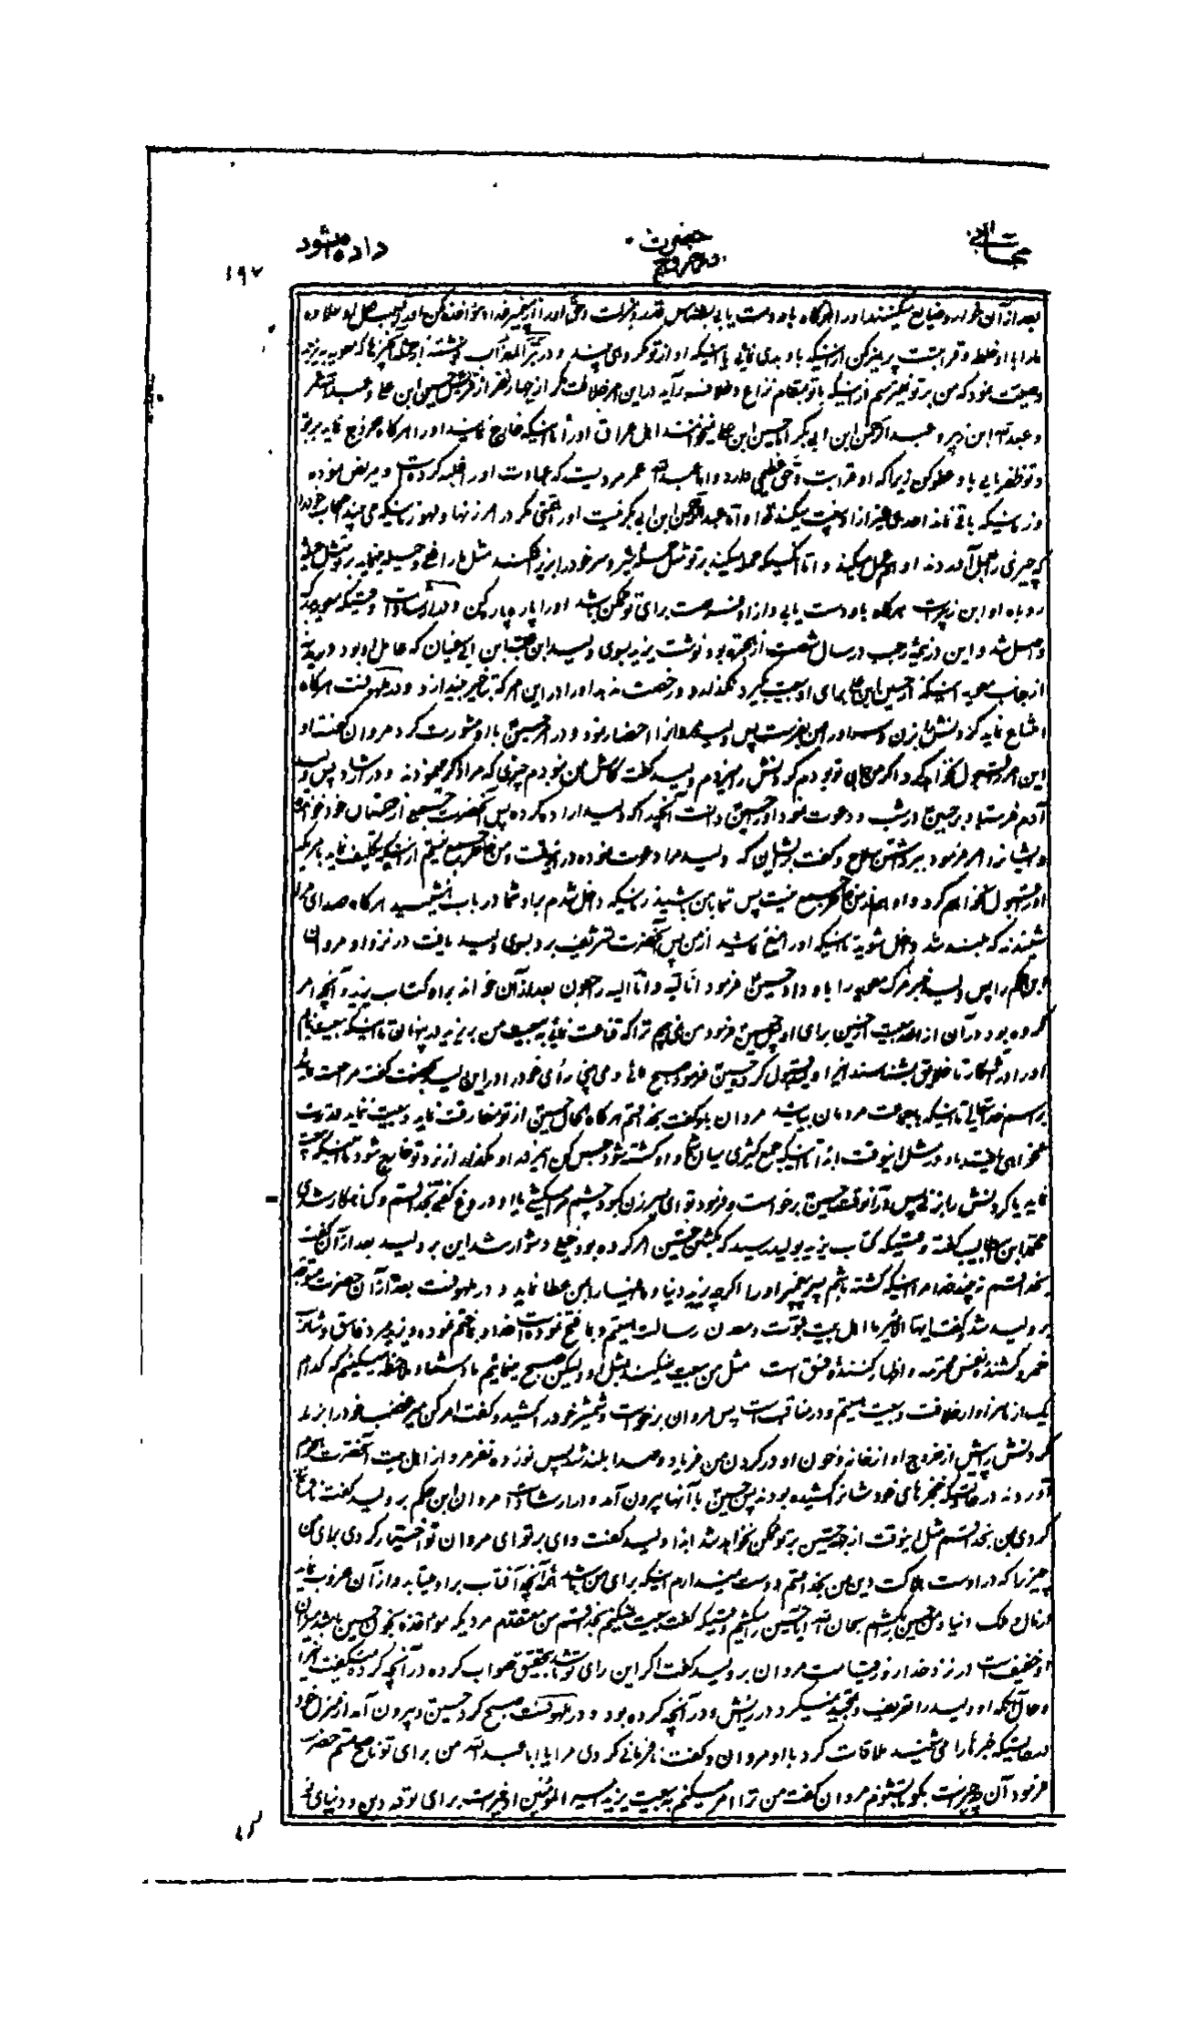 داده میشود
حضرت
۱۹۷
بعد از آن خوار و ضایع میکنند اورا و هرگاه باو دست یابی بشناس قدر و منزلت و حق اورا از پیغمبر خدا و مؤاخذه مکن اورا علاوه
مارا با او خلطه و قرابتست پرهیز کن از اینکه باو بدی نمائی یا اینکه او از تو مکروهی بیند و در
وصیت نمود که من بر تو نمیترسم از اینکه با تو بمقام نزاع و خلاف برآید در این امر خلافت مگر از چهار نفر از قریش حسین ابن علی و عبدالله عمر
و عبدالله ابن زبیر و عبدالرحمن ابن ابی بکر اما حسین ابن علی اهل عراق اورا تا اینکه خارج نمایند اورا و هرگاه خروج نماید بر تو
و تو ظفر یابی باو عفو کن زیرا که او قرابت و حق عظیمی دارد و اما عبدالله عمر مردیست که عبادت اورا غلبه کرده است و مریض نموده
و زمانیکه باقی نماند احدی غیر از او بیعت میکند تورا و اما عبدالرحمن ابن ابی بکر نیست اورا همتی مگر در امر زنها و لهو زمانیکه می بیند اصحاب خودرا
که چیزی بعمل آوردند او هم عمل میکند و اما کسیکه حمله میکند بر تو مثل حمله شیر
روباه او ابن زبیر است هرگاه باو دست یابی و از او فرصت برای تو ممکن باشد اورا پاره پاره کن و در ارشاد است وقتیکه معویه
واصل شد و این در نیمه رجب در سال شصت از هجرة بود نوشت یزید بسوی ولید ابن عتبه ابن ابی سفیان که عامل او بود در مدینه
از جانب معویه اینکه از حسین ابن علی برای او بیعت بگیرد و نگذارد و رخصت ندهد اورا در این امر که بتأخیر بیندازد و در لهوفست هرگاه
امتناع نماید گردنش را بزن و سر اورا بمن بفرست پس ولید مروانرا احضار نمود و در امر حسین با او مشورت کرد مروان گفت او
این امر را قبول نخواهد کرد اگر من بجای تو بودم گردنش را میزدم ولید گفت کاش من نبودم چیزی که مرا ذکر مینمودند و در ارشاد پس ولید
آدم فرستاد بر حسین در شب و دعوت نمود اورا حسین دانست آنچه را که ولید اراده کرده پس آنحضرت جمعی از خویشان خود خواند
و ایشانرا امر فرمود ببرداشتن سلاح و گفت بایشان که ولید مرا دعوت نموده در اینوقت و من خاطر جمع نیستم از اینکه تکلیف نماید بامریکه
اورا قبول نخواهم کرد و او هم از من خاطر جمع نیست پس شما با من باشید زمانیکه داخل شدم باو شما در باب بنشینید هرگاه صدای مرا
شنیدند که بلند شد داخل شوید تا اینکه اورا منع نمائید از من پس آنحضرت تشریف برد بسوی ولید یافت در نزد او مروان
ابن حکم را پس ولید خبر مرگ معویه را باو داد حسین فرمود انا لله و انا الیه راجعون بعد از آن خواند بر او کتاب یزید و آنچه امر
کرده بود در آن از اخذ بیعت از حسین برای او پس حسین فرمود من نمی بینم ترا که قناعت نمائی به بیعت من بر یزید در پنهان تا اینکه بیعت نمایم
اورا در آشکار تا خلایق بشناسند اینرا ولید قبول کرد حسین فرمود صبح مینمائی و می بینی رأی خود را در این ولید بآنحضرت گفت مراجعت نمائید
بر اسم خدایتعالی تا اینکه با جماعت مردمان بیائید مروان باو گفت بخدا قسم هرگاه الحال حسین از تو مفارقت نماید و بیعت ننماید قدرت
نخواهی یافت باو در مثل اینوقت ابدا تا اینکه جمع کثیری میان شما و او کشته شود حبس کن این مرد را و مگذار از نزد تو خارج شود تا اینکه بیعت
نماید یا گردنش را بزنی پس در آنوقت حسین برخواست و فرمود تو ای پسر زن کبود چشم مرا میکشی یا او دروغ گفتی بخدا قسم و گناهکار شدی
محمد ابن ابیطالب گفته وقتیکه کتاب یزید بولید رسید که بکشتن حسین امر کرده بود خیلی دشوار شد این بر ولید بعد از آن گفت
بخدا قسم نه بیند خدا مرا اینکه کشته باشم پسر پیغمبر اورا اگرچه یزید دنیا و مافیها را بمن عطا نماید و در لهوفست بعد از آن حضرت متوجه
بر ولید شد و گفت ایها الامیر ما اهل بیت نبوت و معدن رسالت هستیم و بما فتح نموده است خدا و بما ختم نموده و یزید مرد فاسق و شارب
خمر و کشندهٔ نفس محترمه و اظهار کنندهٔ فسق است مثل من بیعت نمیکند بمثل او ولیکن صبح مینمائیم ما و شما و ملاحظه میکنیم که کدام
یک از ما سزاوار خلافت و بیعت هستیم پس مروان برخواست و شمشیر خود را کشید و گفت امر کن میرغضب خود را بزند
گردنش را پیش از خروج او از خانه و خون او در گردن من فریاد و صدا بلند شد پس نوزده نفر مرد از اهل بیت آنحضرت هجوم
آوردند در حالتیکه خنجرهای خود شانرا کشیده بودند پس حسین با آنها بیرون آمد و در ارشاد است مروان ابن حکم بر ولید گفت
کردی بمن بخدا قسم مثل اینوقت از جهت حسین بر تو ممکن نخواهد شد ابدا ولید گفت وای بر تو ای مروان تو اختیار کردی برای من
چیزیرا که در اوست هلاکت دین من بخدا قسم دوست نمیدارم اینکه برای من باشد هر آنچه آفتاب بر او میتابد و از آن غروب نماید
از مال و ملک دنیا و من حسین را بکشم سبحان الله آیا حسین را میکشم وقتیکه گفت بیعت نمیکنم بخدا قسم من معتقدم مردیکه مواخذه بخون حسین باشد میزان
او خفیف است در نزد خدا در روز قیامت مروان بر ولید گفت اگر این رأی تو باشد بتحقیق صواب کرده در آنچه کرده میگفت اینرا
و حال آنکه او ولید را تعریف و تمجید نمیکرد در رأیش و در آنچه کرده بود و در لهوفست صبح کرد حسین و بیرون آمد از منزل خود
در حالتیکه خبرها را می شنید ملاقات کرد با او مروان و گفت نافرمانی کردی مرا یا ابا عبدالله من برای تو ناصح هستم حضرت
فرمود آن چه چیز است بگو تا بشنوم مروان گفت من ترا امر میکنم به بیعت یزید امیر المؤمنین او خیر است برای تو در دین و دنیای تو